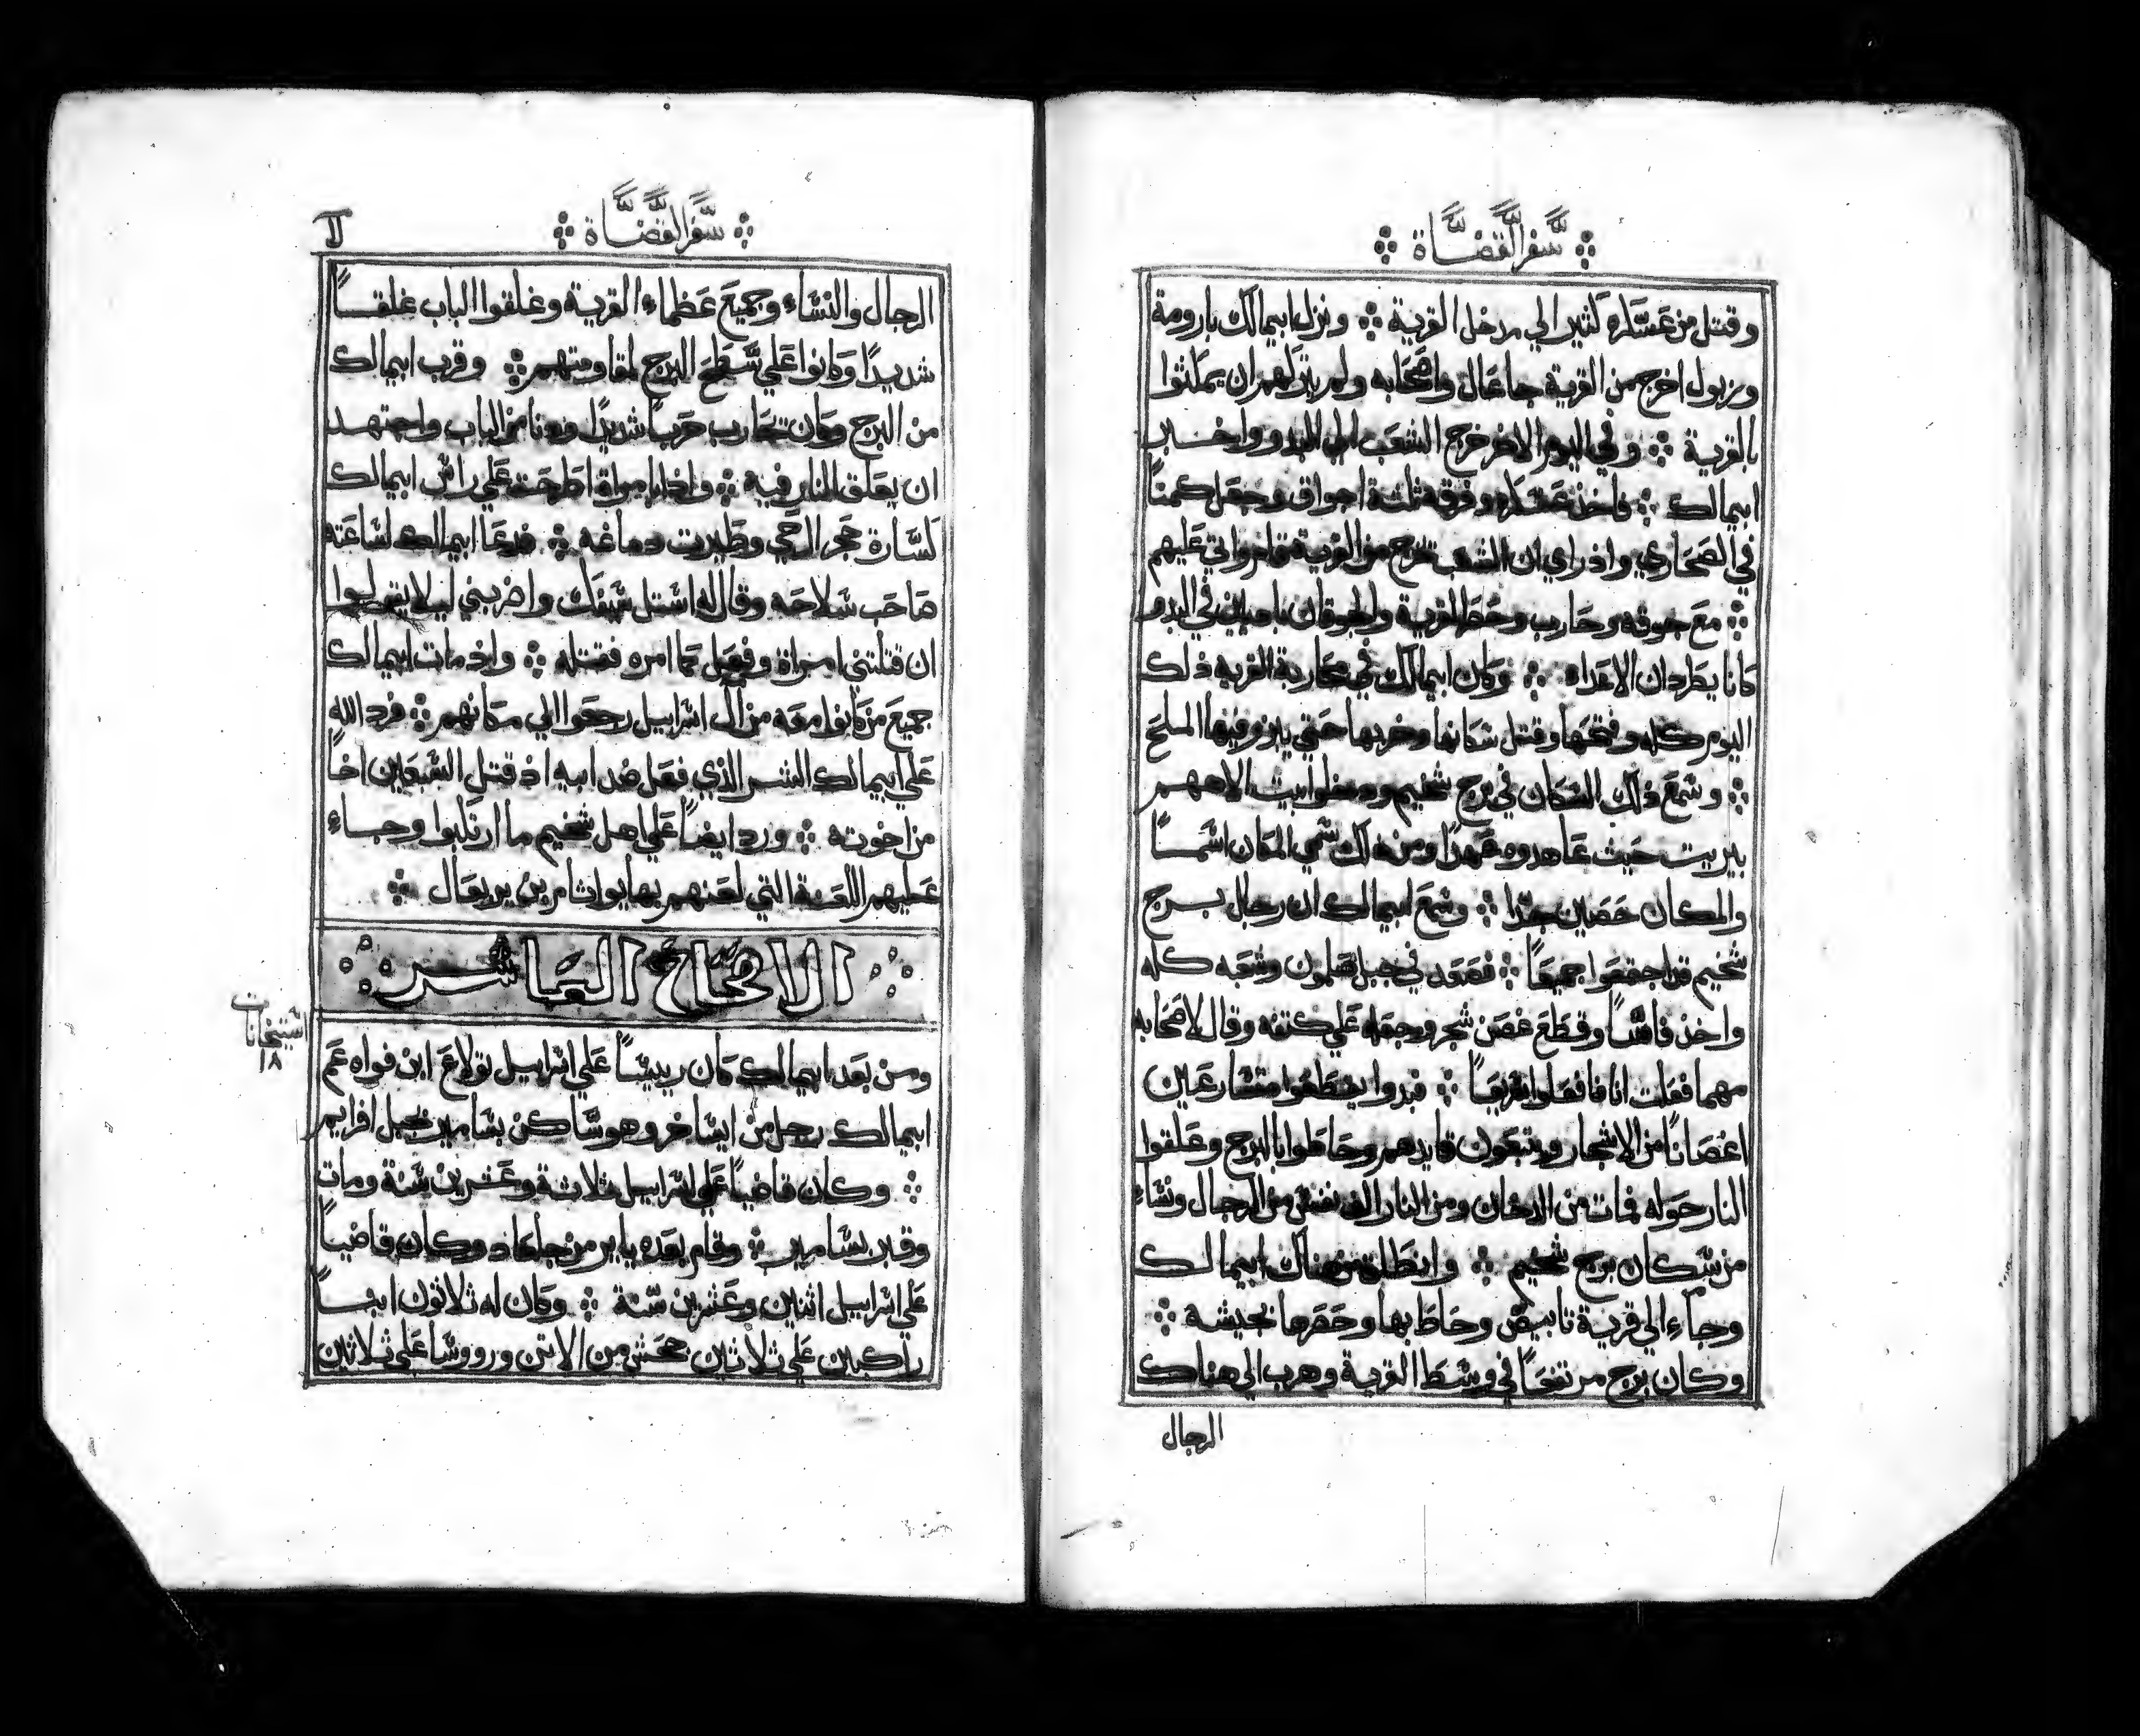 سفر القضاة
وقتل من عسكره كثير الي مدخل القرية ونزل ابيمالك بارومة
وزبول اخرج من القرية جاعال واصحابه ولم يترلهم ان يمكثوا
بالقرية وفي اليوم الاخر خرج الشعب الي البدو واخبر
ابيمالك فاخذ عسكره وفرقه ثلثة اجواق وجعل كمنًا
في الصحاري واذ راي ان الشعب تخرج من القرية قام واتي عليهم
مع جوقه وحارب وحط القرية والجوقان في البدو
كانا يطردان الاعداء وكان ابيمالك في محاربة القريه ذلك
اليوم كله وفتحها وقتل سكانها وخربها حتي يزر فيها الملح
وسمع ذلك السكان في برج شخيم ودخلوا بيت الاههم
بيريت حيث عاهدوه عهدًا ومن ذلك سمي المكان اسمًا
والمكان حصين جدًا وسمع ابيمالك ان رجال برج
شخيم قد اجتمعوا جميعًا فصعد في جبل صلمون وشعبه كله
واخذ فاسًا وقطع غصن شجر وجعله علي كتفه وقال لاصحابه
مهما فعلت انا فافعلوا سريعًا فبدوا يقطعوا متسارعين
اغصانًا من الاشجار ويتبعون قايدهم وحاطوا بالبرج وعلقوا
النار حوله فمات من الدخان ومن النار الف نفس من الرجال ونساء
من سكان برج شخيم وانطلق من هناك ابيمالك
وجاء الي قرية تابيص وحاط بها وحصرها بجيشه
وكان برج مرتفعًا في وسط القرية وهرب الي هناك
الرجال
سفر القضاة
الرجال والنساء وجميع عظماء القرية وغلقوا الباب غلقًا
شديدًا وكانوا علي سطح البرج لمقاومتهم وقرب ابيمالك
من البرج وكان تحارب حربًا شديدًا ودنا من الباب واجتهد
ان يعلق النار فيه واذا امراة اطرحت علي راس ابيمالك
كسارة حجر الرحي وطيرت دماغه فدعا ابيمالك لساعته
صاحب سلاحه وقال له استل سيفك واضربني ليلا يقولوا
ان قتلتني امراة وفعل كما امره فقتله واذ مات ابيمالك
جميع من كانوا معه من آل اسراييل رجعوا الي مكانهم فرد الله
علي ابيمالك الشر الذي فعل ضد ابيه اذ قتل السبعين اخًا
من اخوته ورد ايضًا علي اهل شخيم ما ارتكبوا وجاء
عليهم اللعنة التي لعنهم بها يواثام بن يوربعال
الاصحاح العاشر
ومن بعد ابيمالك كان رييسًا علي اسراييل تولاع ابن فواه عم
ابيمالك رجل من ايساخر وهو ساكن بسامير بجبل افرايم
وكان قاضيًا علي اسراييل ثلاثة وعشرين سنة ومات
وقبر بسامير وقام بعده يايير من جلعاد وكان قاضيًا
علي اسراييل اثنين وعشرين سنة وكان له ثلاثون ابنًا
راكبين علي ثلاثين جحش من الاتن ورووسًا علي ثلاثين
١٨